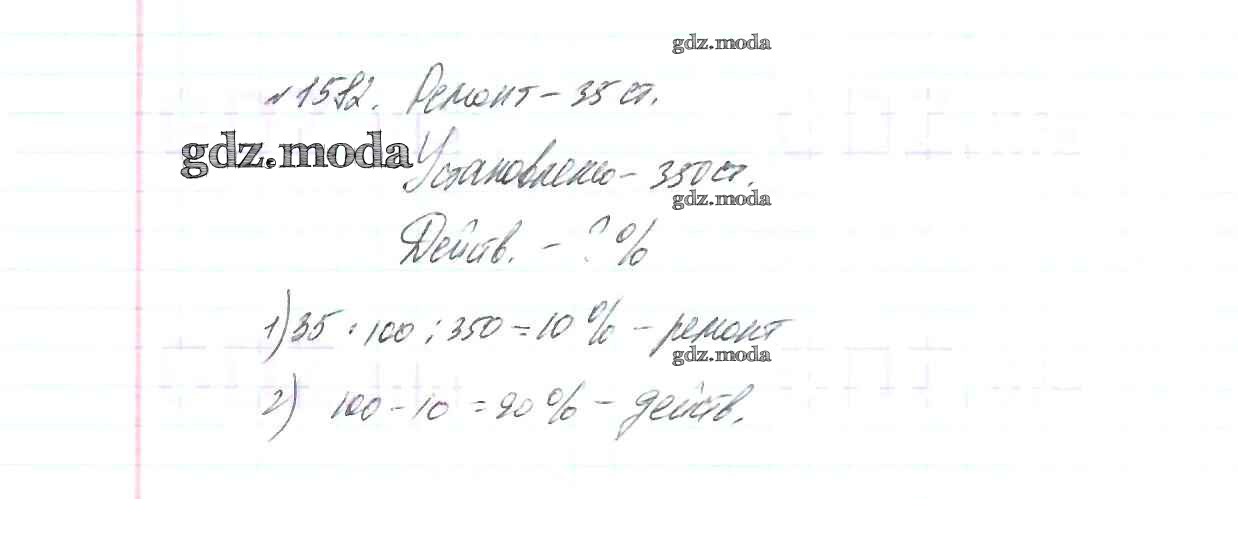 gdz.moda
№1592. Ремонт - 35 ст.
gdz.moda
Установлено - 350 ст.
gdz.moda
Действ. - ? %
1) 35 · 100 : 350 = 10 % - ремонт
gdz.moda
2) 100 - 10 = 90 % - действ.